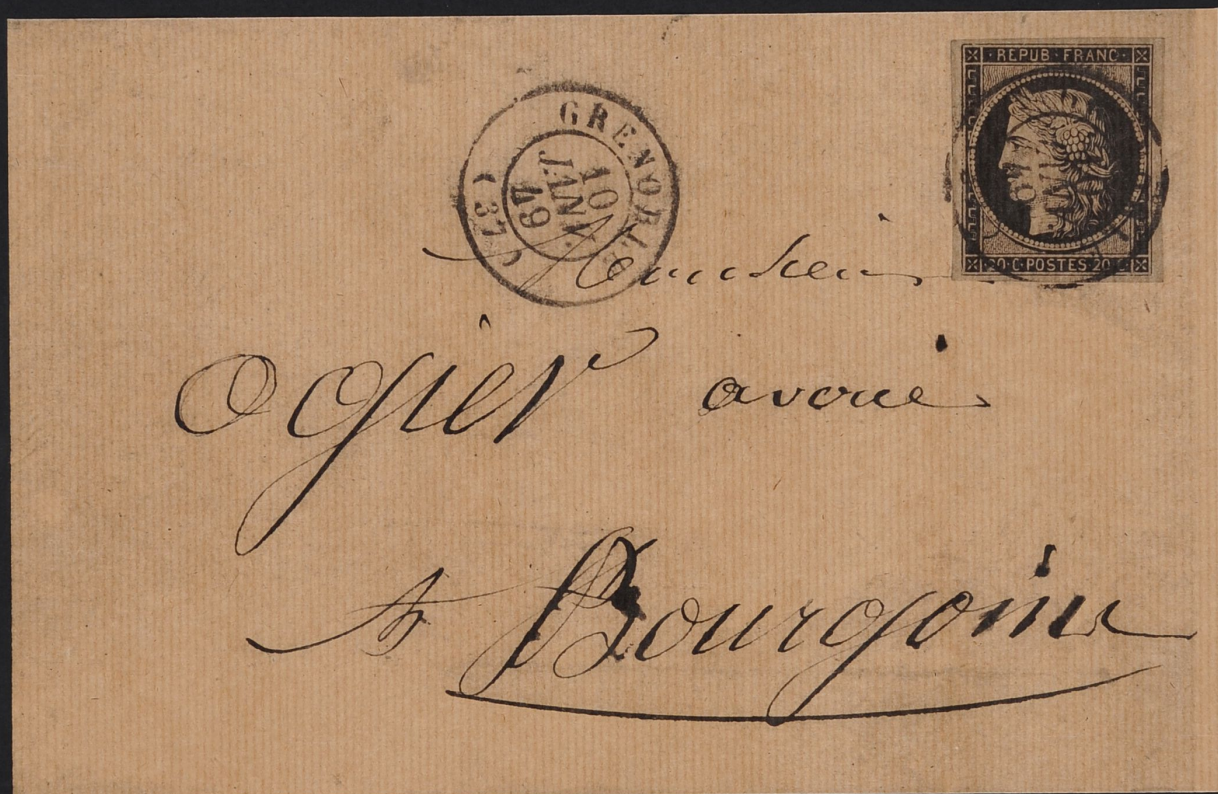 REPUB · FRANC ·
20 · C · POSTES · 20 · C
GRENOBLE
10
JANV.
49
(37)
Monsieur
Ogier avoué
A Bourgoin